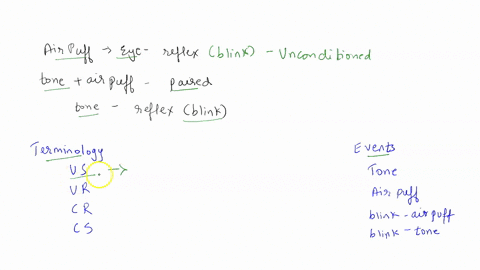 Air Puff → Eye - reflex (blink) - Unconditioned
tone + air puff - paired
tone - reflex (blink)
Terminology
US →
UR
CR
CS
Events
Tone
Air puff
blink - air puff
blink - tone